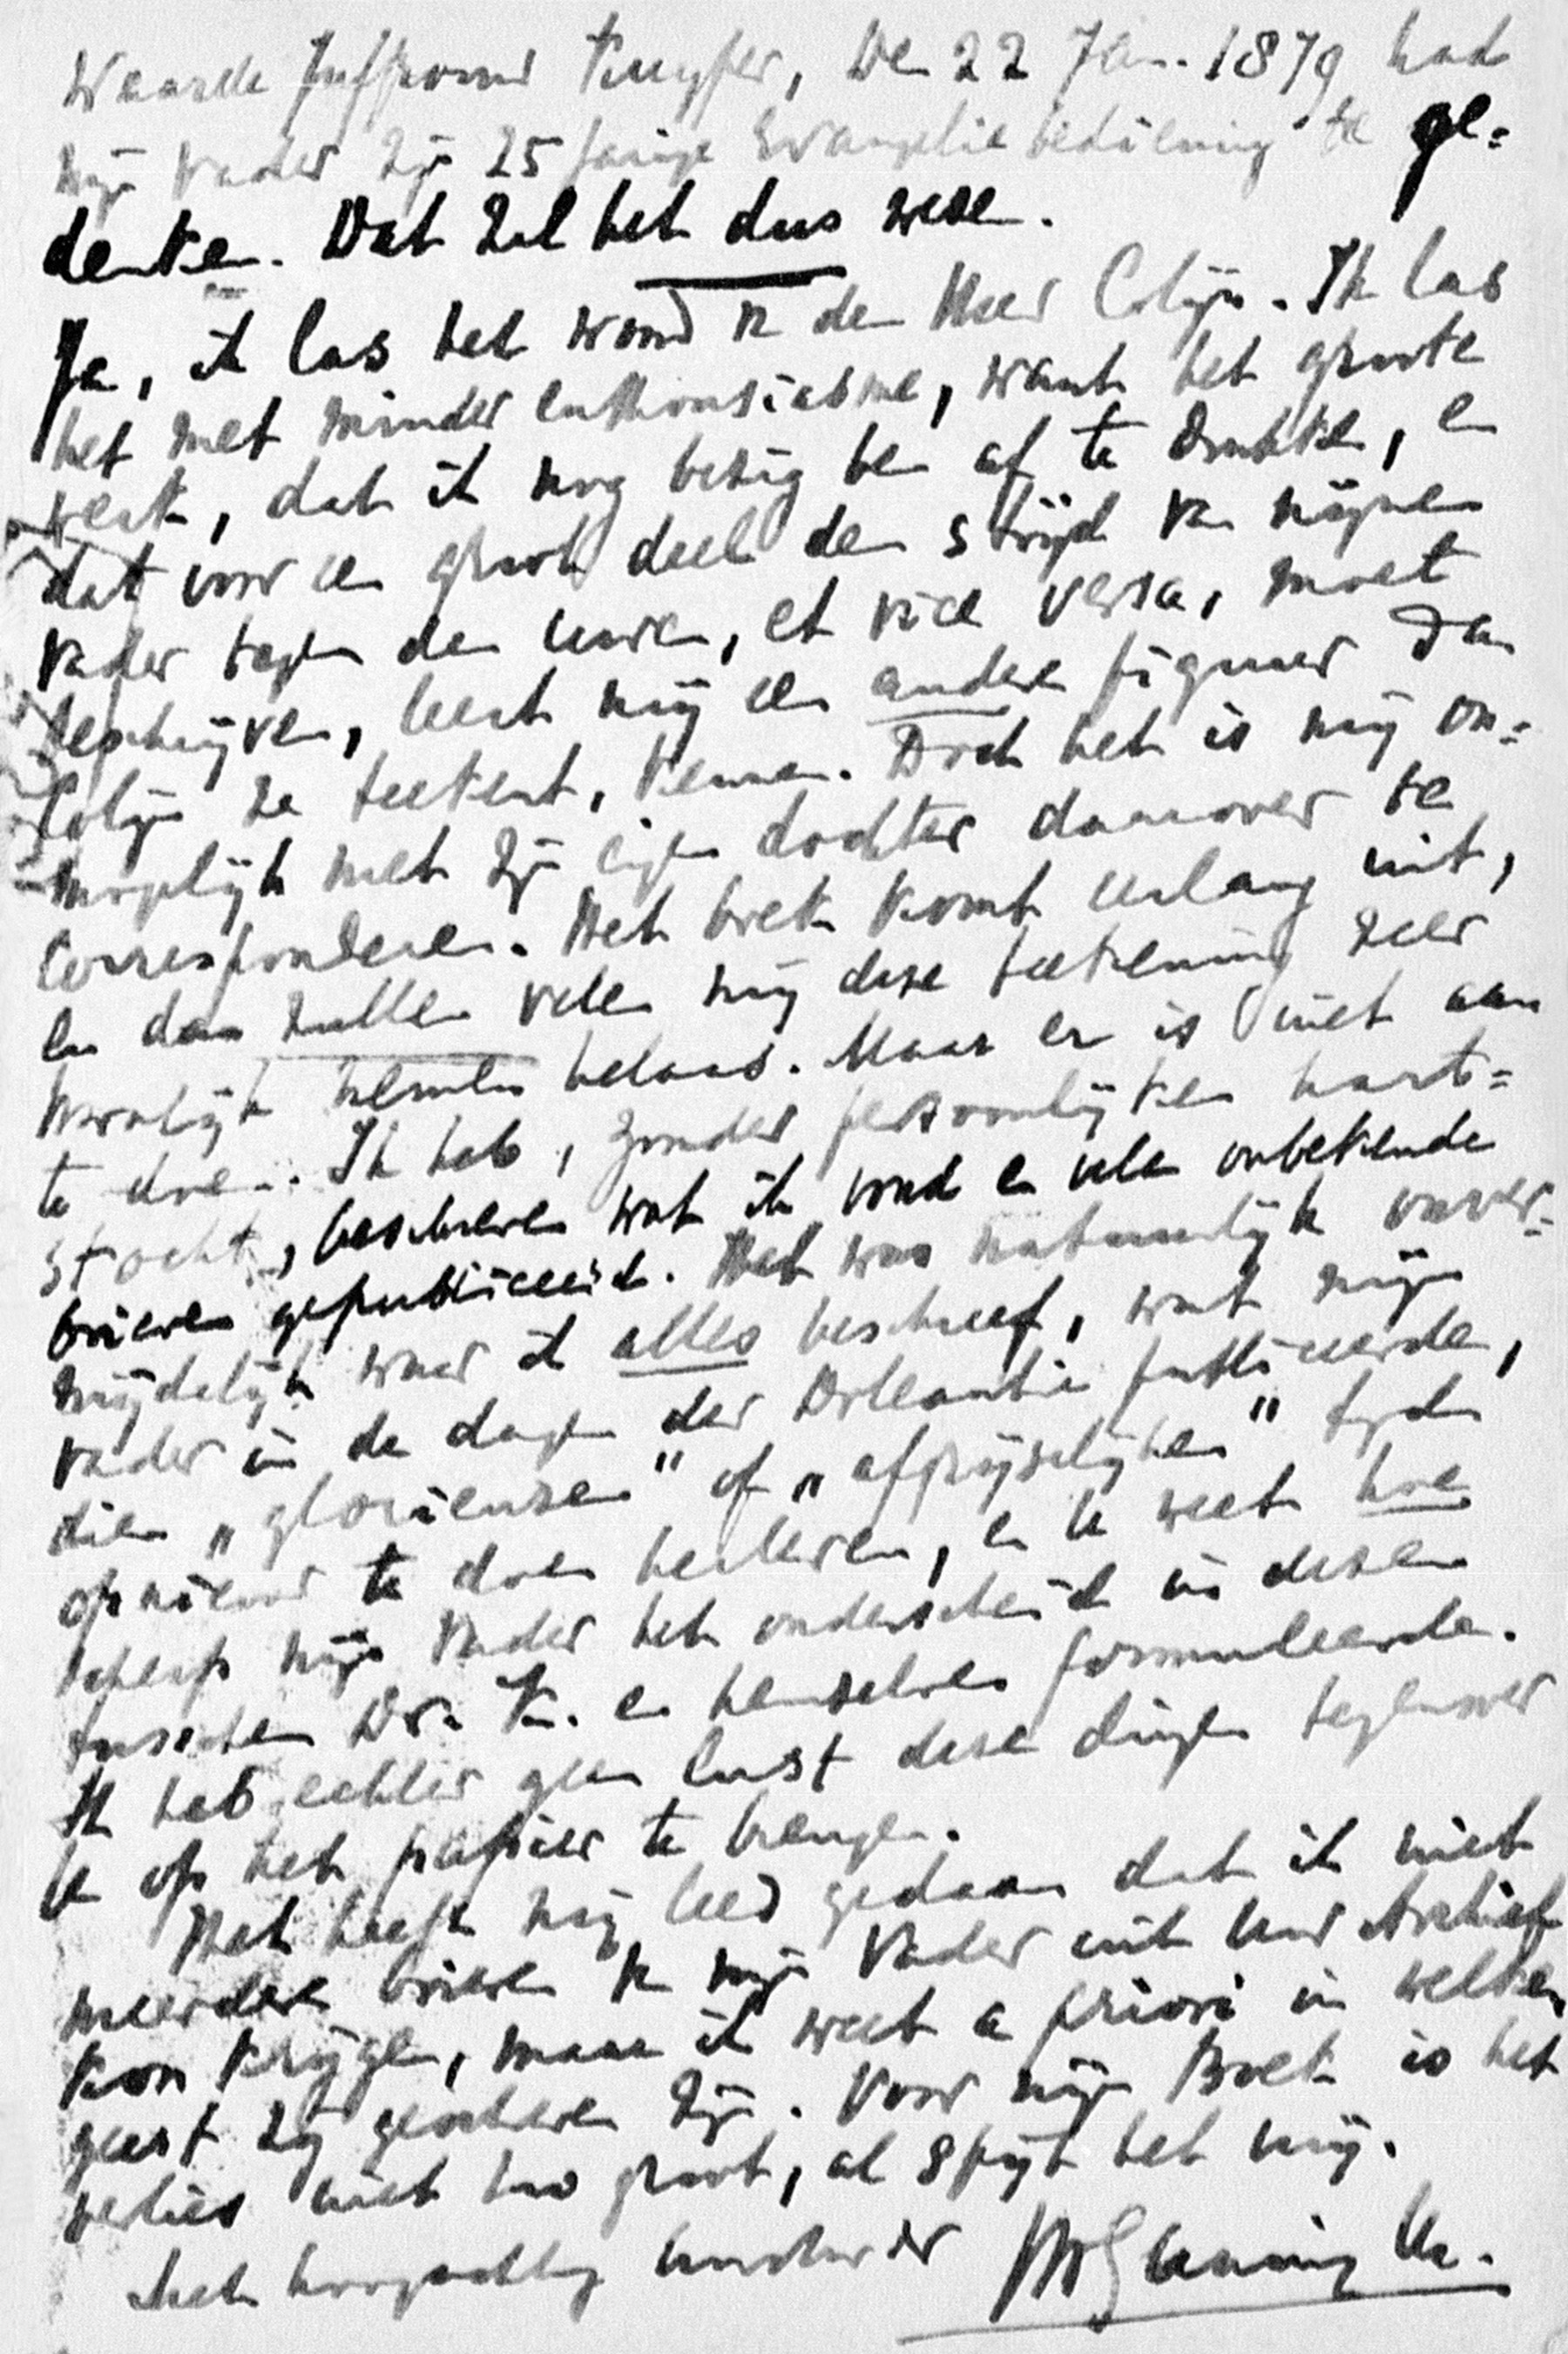 Waarde Juffrouw Kuyper, De 22 Jan. 1879 had
mijn Vader zijn 25 jarige Evangeliebediening te ge=
denken. Dat zal het dus wezen.
Ja, ik las het woord v. den Heer Colijn. Ik las
het met minder enthousiasme, want het groote
werk, dat ik nog bezig ben af te drukken, en
dat voor een groot deel den strijd van mijnen
Vader tegen den Uwen, et vice versa, moet
beschrijven, leert mij een andere figuur dan
Colijn ze teekent, kennen. Doch het is mij on=
mogelijk met zijn eigen dochter daarover te
correspondeeren. Het boek komt eerlang uit,
en dan zullen velen mij deze teekening zeer
kwalijk nemen helaas. Maar er is niet aan
te doen. Ik heb, zonder persoonlijken harts=
tocht, beschreven wat ik vond en vele onbekende
brieven gepubliceerd. Het was natuurlijk onver=
mijdelijk waar ik alles beschreef, wat mijn
Vader in de dagen der Doleantie publiceerde,
dien "glorieuzen" of "afgrijselijken" tijd
opnieuw te doen herleven, en U weet hoe
scherp mijn Vader het onderscheid in dezen
tusschen Dr. K. en hemzelven formuleerde.
Ik heb echter geen lust deze dingen tegenover
U op het papier te brengen.
Het heeft mij leed gedaan dat ik niet
meerdere brieven v. mijn Vader uit Uw Archief
kon krijgen, maar ik weet a priori in welken
geest zij geschreven zijn. Voor mijn Boek is het
verlies niet zoo groot, al spijt het mij.
Met hoogachting